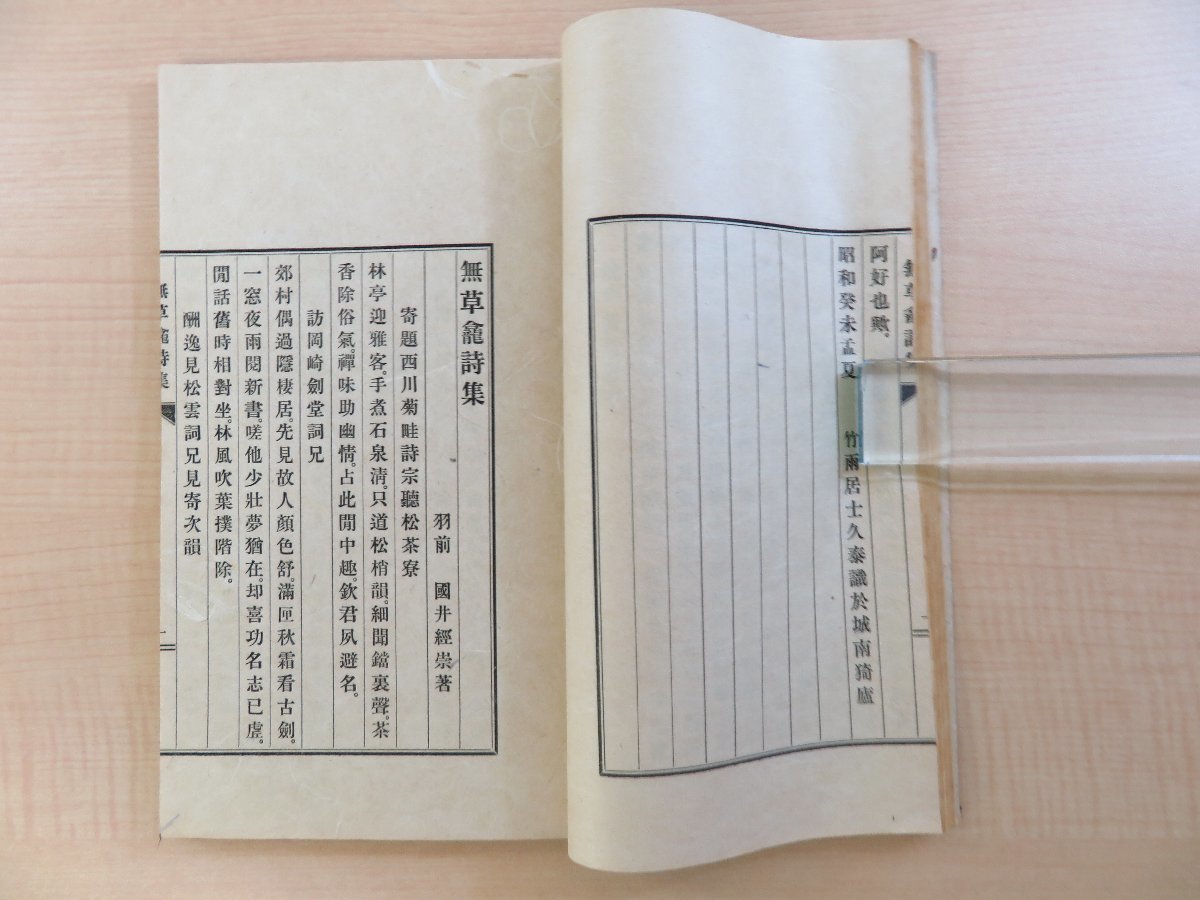 阿好也歟。
昭和癸未孟夏　竹雨居士久泰識於城南猗廬
無草龕詩集
羽前　國井經崇著
寄題西川菊畦詩宗聽松茶寮
林亭迎雅客。手煮石泉淸。只道松梢韻。細聞鐺裏聲。茶
香除俗氣。禪味助幽情。占此閒中趣。欽君夙避名。
訪岡崎劍堂詞兄
郊村偶過隱棲居。先見故人顏色舒。滿匣秋霜看古劍。
一窓夜雨閱新書。嗟他少壯夢猶在。却喜功名志已虛。
閒話舊時相對坐。林風吹葉撲階除。
酬逸見松雲詞兄見寄次韻
無草龕詩集
一